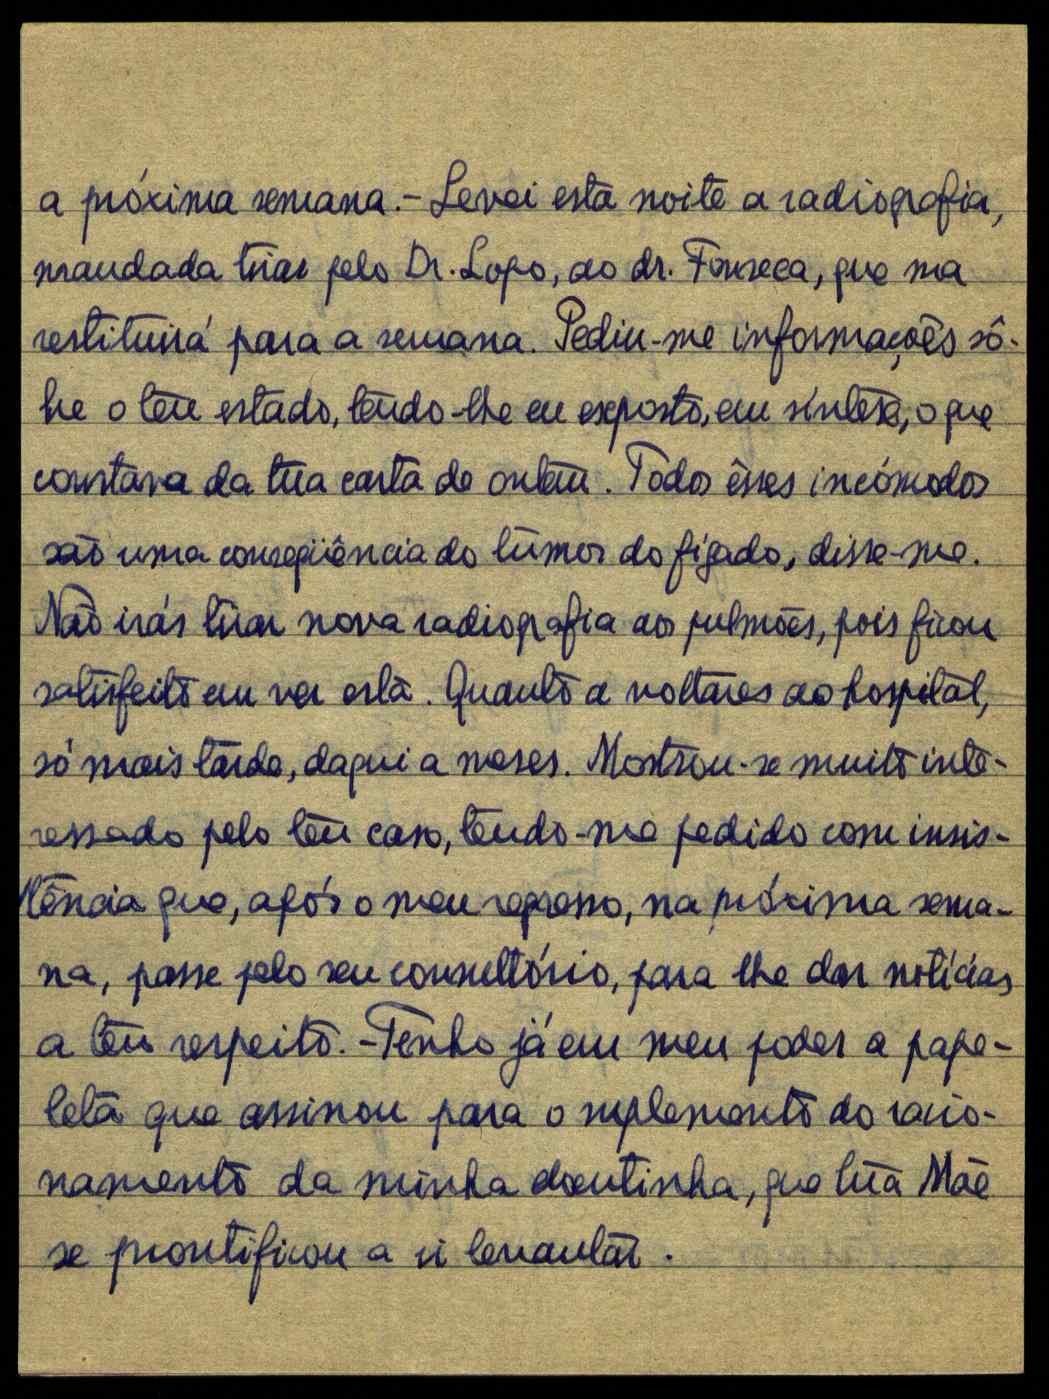 a próxima semana. - Levei esta noite a radiografia,
mandada tirar pelo Dr. Lopo, ao dr. Fonseca, que ma
restituirá para a semana. Pediu-me informações sô-
bre o teu estado, tendo-lhe eu exposto, em síntese, o que
constava da tua carta de ontem. Todos êsses incómodos
são uma conseqüência do tumor do fígado, disse-me.
Não irás tirar nova radiografia aos pulmões, pois ficou
satisfeito em ver esta. Quanto a voltares ao hospital,
só mais tarde, daqui a meses. Mostrou-se muito inte-
ressado pelo teu caso, tendo-me pedido com insis-
tência que, após o meu regresso, na próxima sema-
na, passe pelo seu consultório, para lhe dar notícias
a teu respeito. - Tenho já em meu poder a pape-
leta que assinou para o suplemento do racio-
namento da minha doentinha, que tua Mãe
se prontificou a ir levantar.